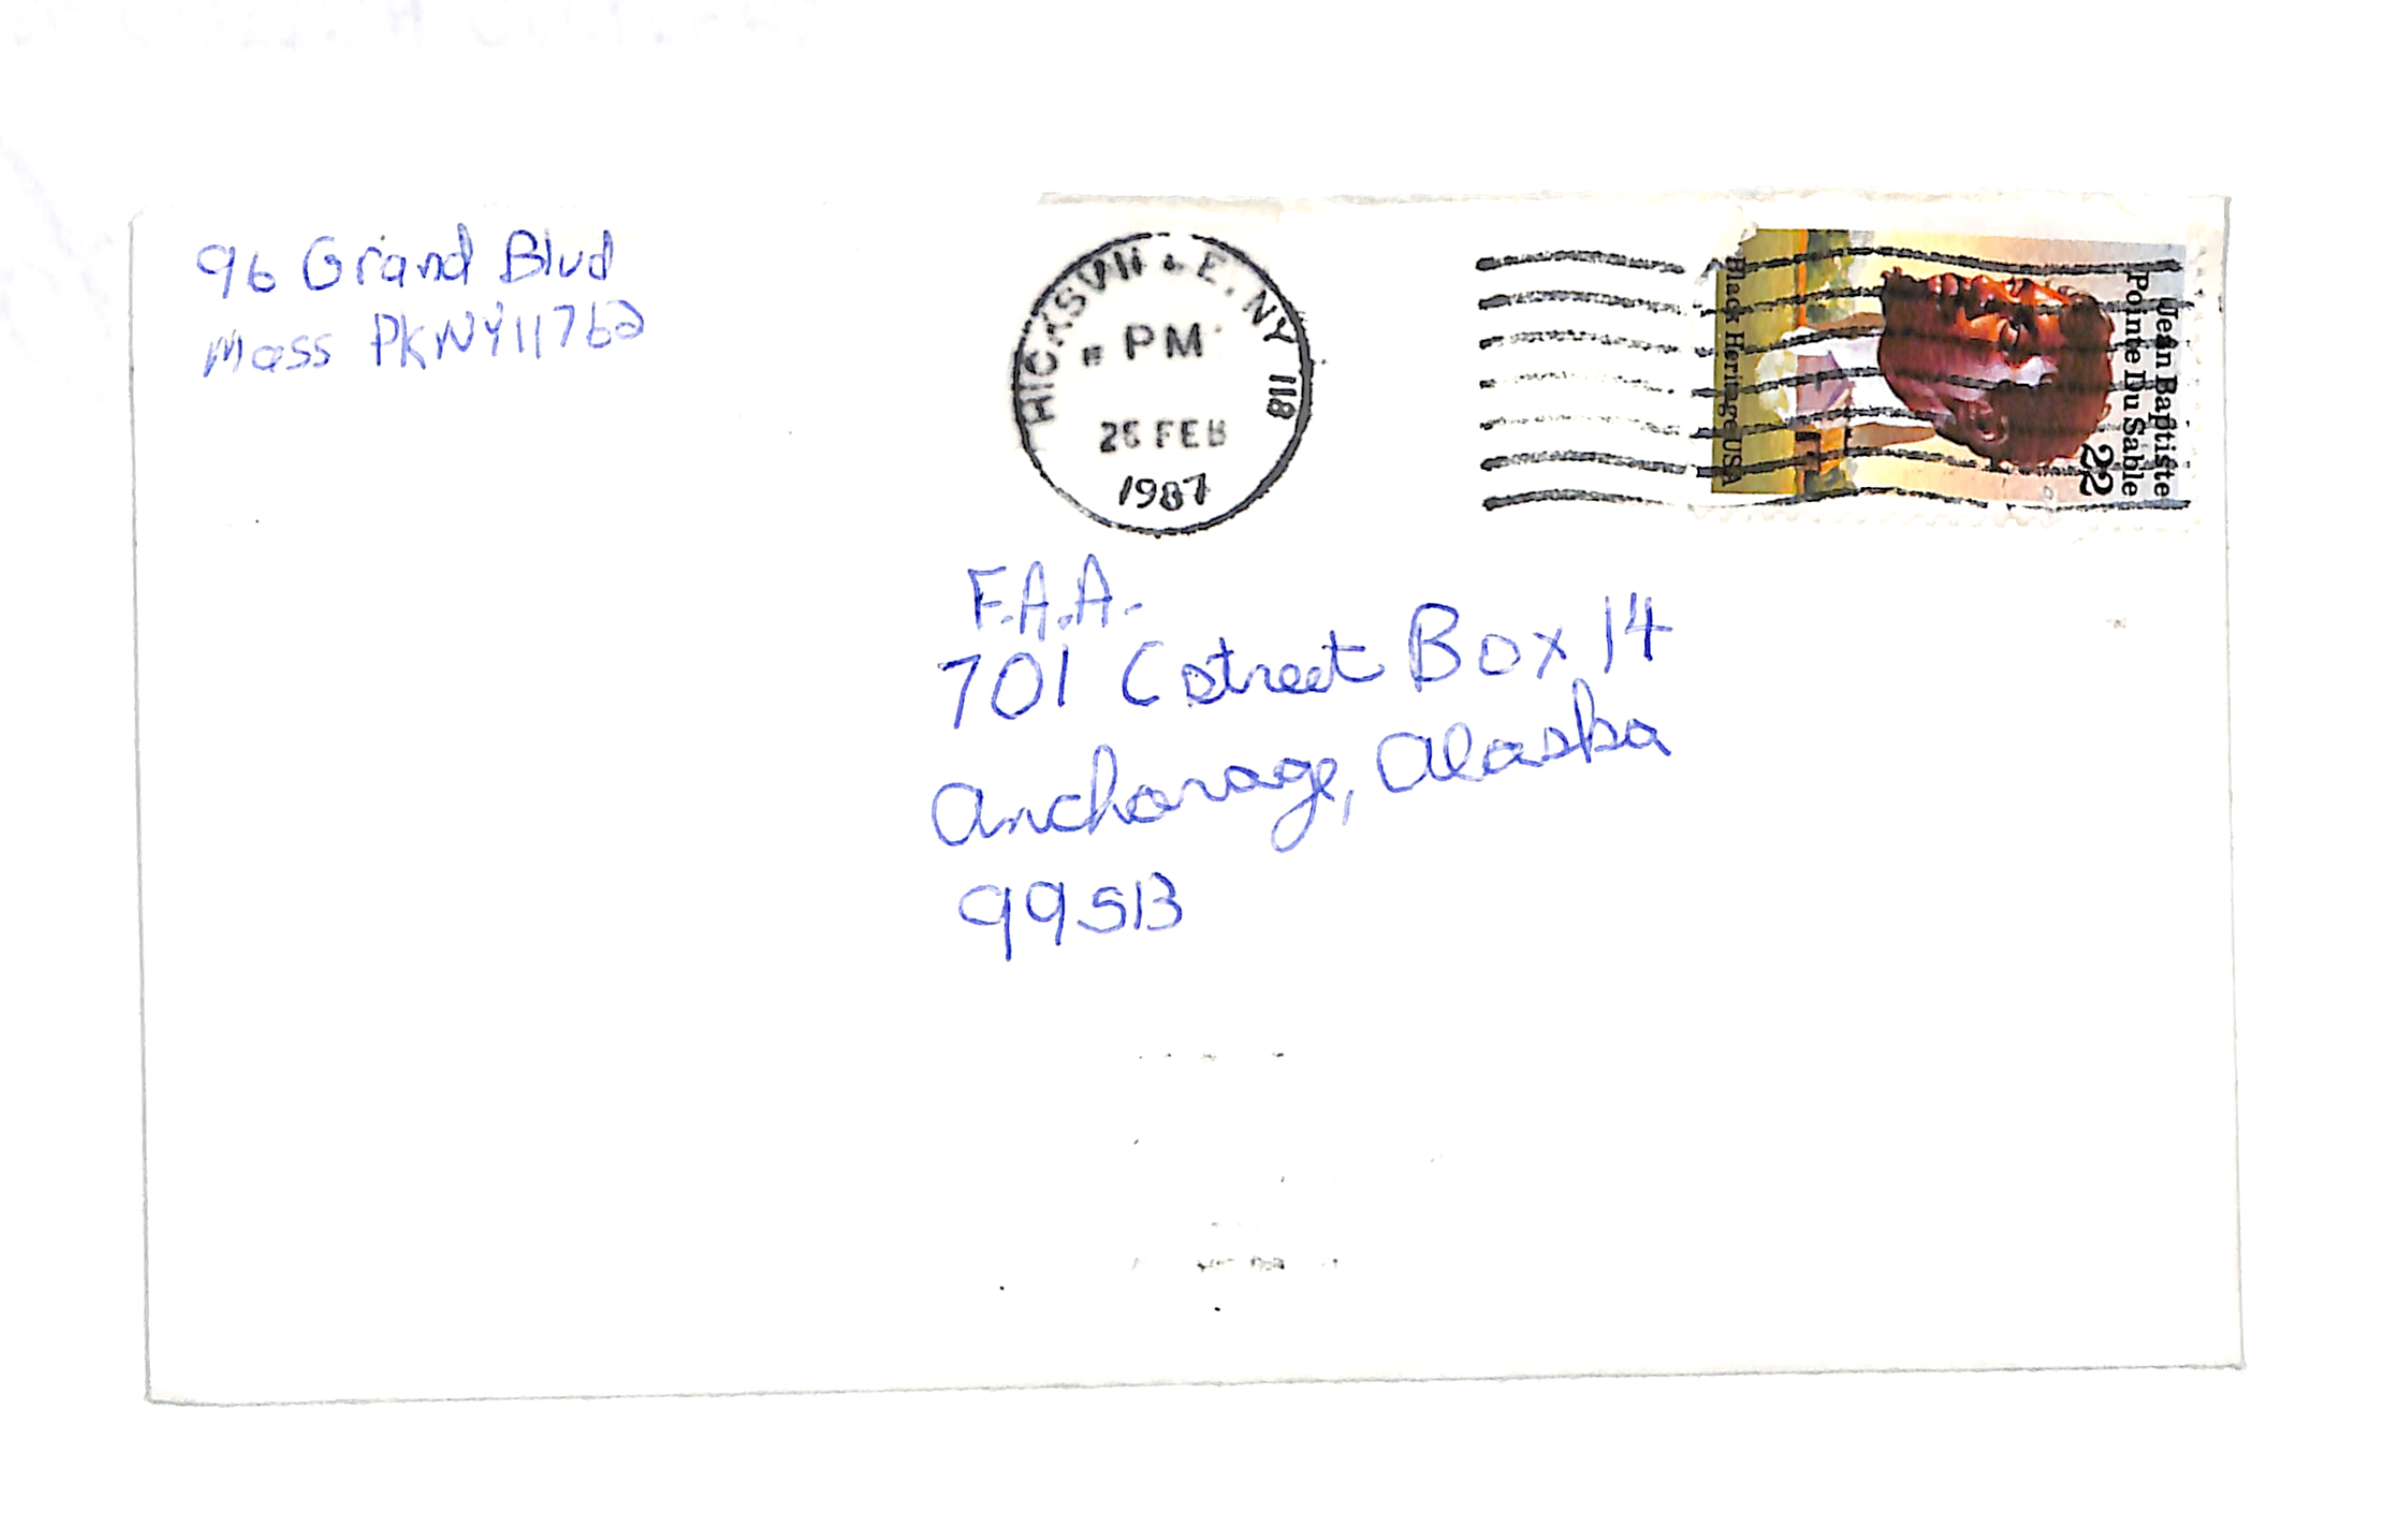 96 Grand Blvd
Mass PK NY 11762
HICKSVILLE, NY 118
PM
25 FEB
1987
Jean Baptiste
Pointe Du Sable
22
Black Heritage USA
F.A.A.
701 C street Box 14
Anchorage, Alaska
99513